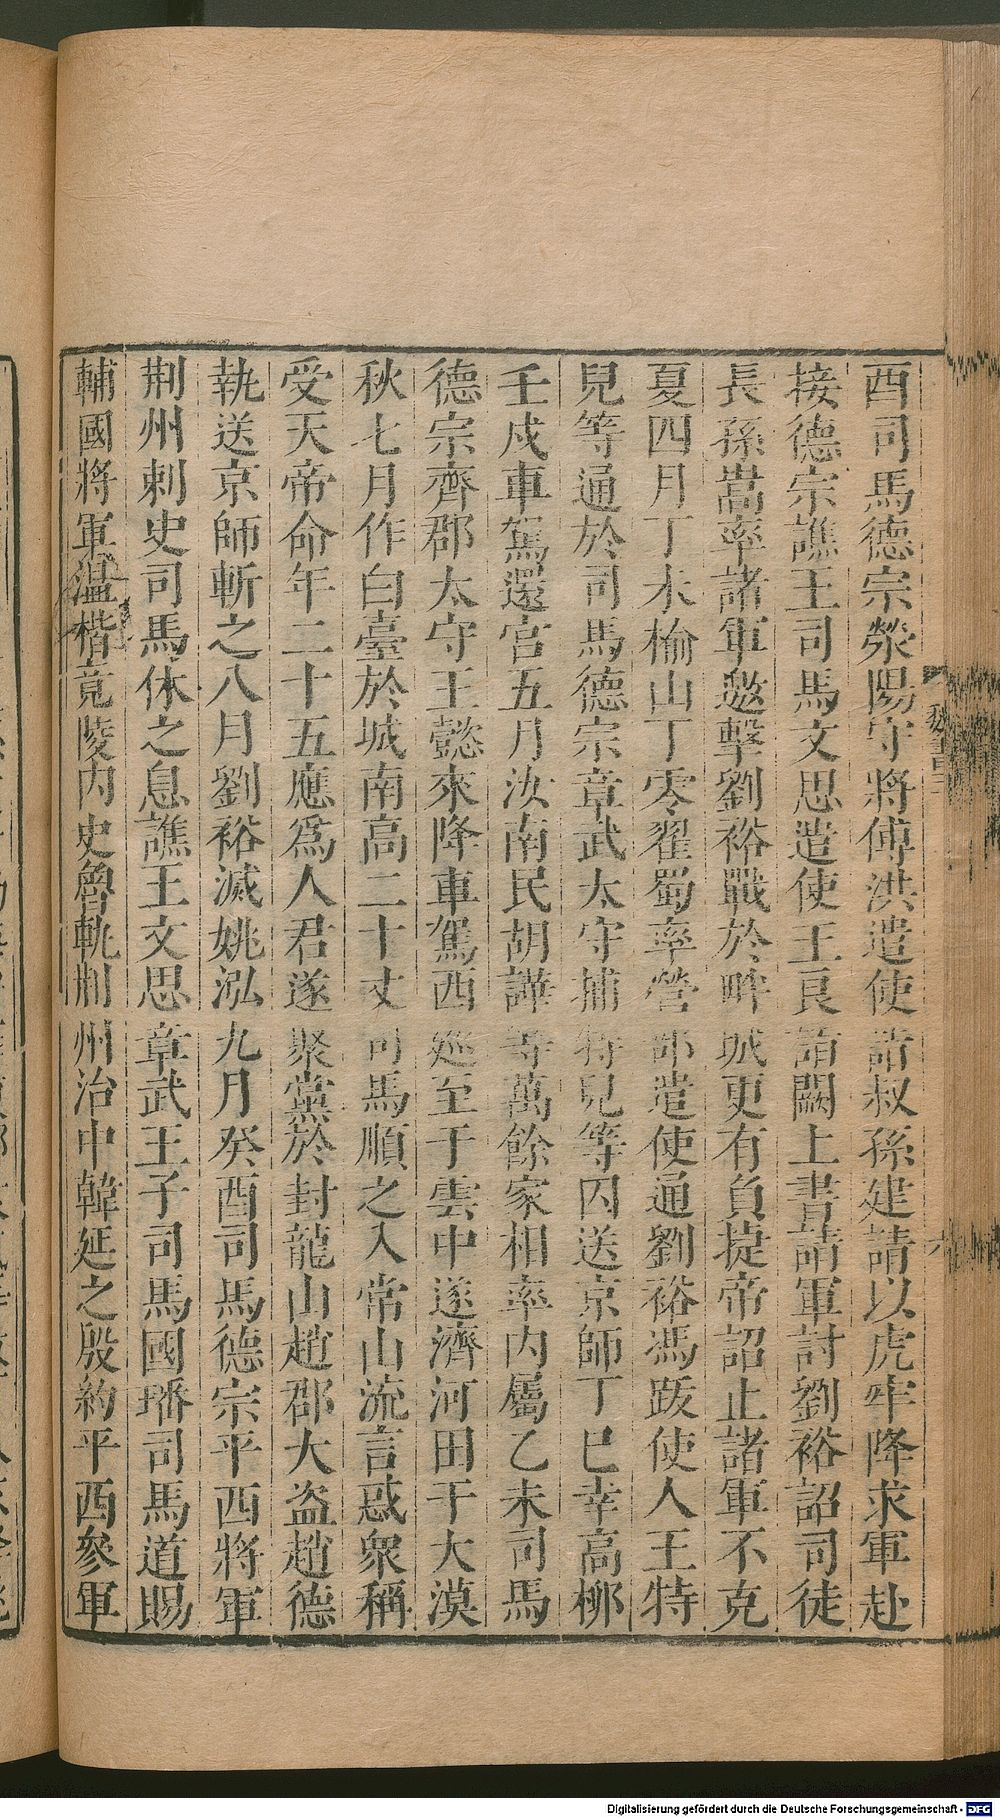 酉司馬德宗滎陽守將傅洪遣使詣叔孫建請以虎牢降求軍赴
接德宗譙王司馬文思遣使王良詣闕上書請軍討劉裕詔司徒
長孫嵩率諸軍邀擊劉裕戰於畔城更有負捷帝詔止諸軍不克
夏四月丁未榆山丁零翟蜀率營部遣使通劉裕馮跋使人王特
兒等通於司馬德宗章武太守捕特兒等囚送京師丁巳幸高柳
壬戌車駕還宮五月汝南民胡譁等萬餘家相率內屬乙未司馬
德宗齊郡太守王懿來降車駕西巡至于雲中遂濟河田于大漠
秋七月作白臺於城南高二十丈司馬順之入常山流言惑衆稱
受天帝命年二十五應爲人君遂聚黨於封龍山趙郡大盜趙德
執送京師斬之八月劉裕滅姚泓九月癸酉司馬德宗平西將軍
荆州刺史司馬休之息譙王文思章武王子司馬國璠司馬道賜
輔國將軍溫楷竟陵內史魯軌荆州治中韓延之殷約平西參軍
Digitalisierung gefördert durch die Deutsche Forschungsgemeinschaft - DFG